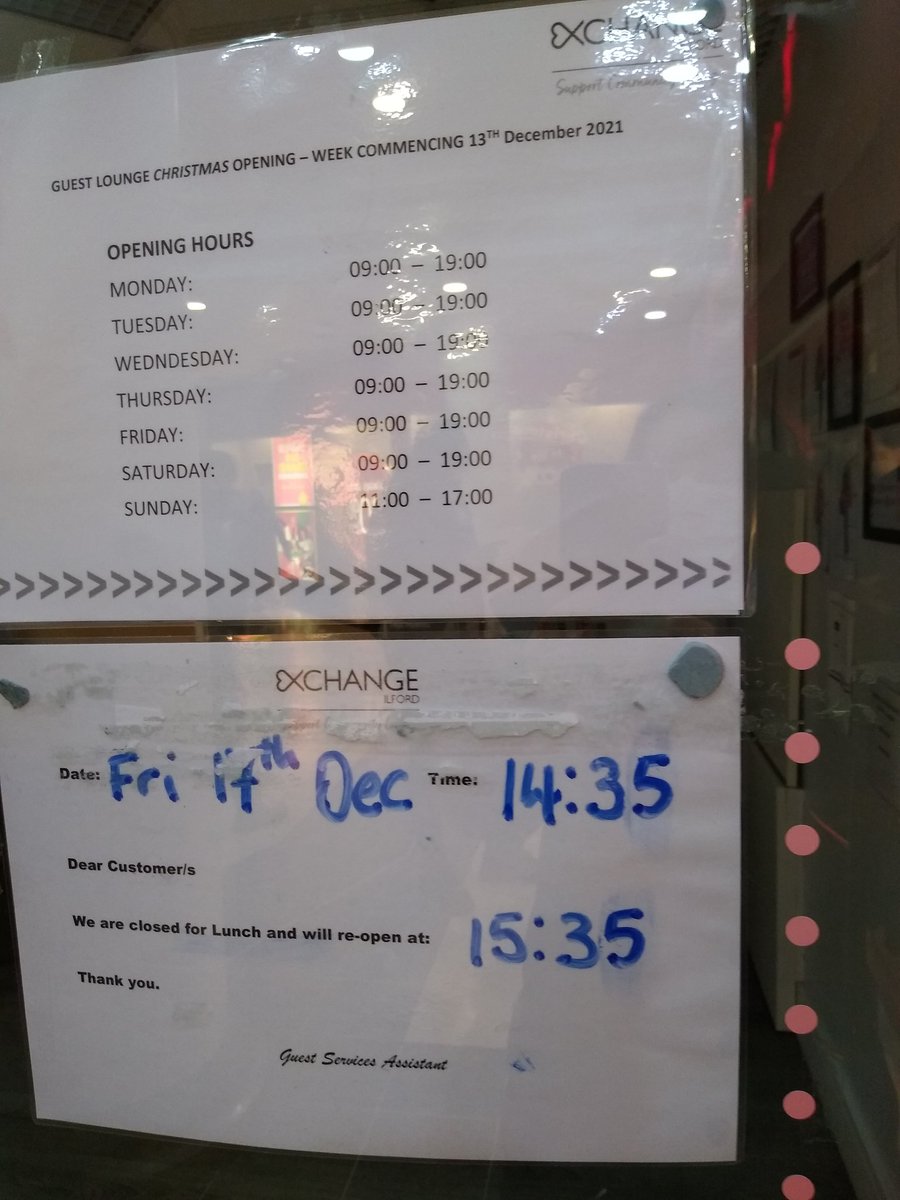 EXCHANGE
ILFORD
Support Community
GUEST LOUNGE CHRISTMAS OPENING – WEEK COMMENCING 13TH December 2021
OPENING HOURS
MONDAY: 09:00 – 19:00
TUESDAY: 09:00 – 19:00
WEDNDESDAY: 09:00 – 19:00
THURSDAY: 09:00 – 19:00
FRIDAY: 09:00 – 19:00
SATURDAY: 09:00 – 19:00
SUNDAY: 11:00 – 17:00
>>>>>>>>>>>>>>>>>>>>>>>>>>>>>
EXCHANGE
ILFORD
Date: Fri 17th Dec Time: 14:35
Dear Customer/s
We are closed for Lunch and will re-open at: 15:35
Thank you.
Guest Services Assistant